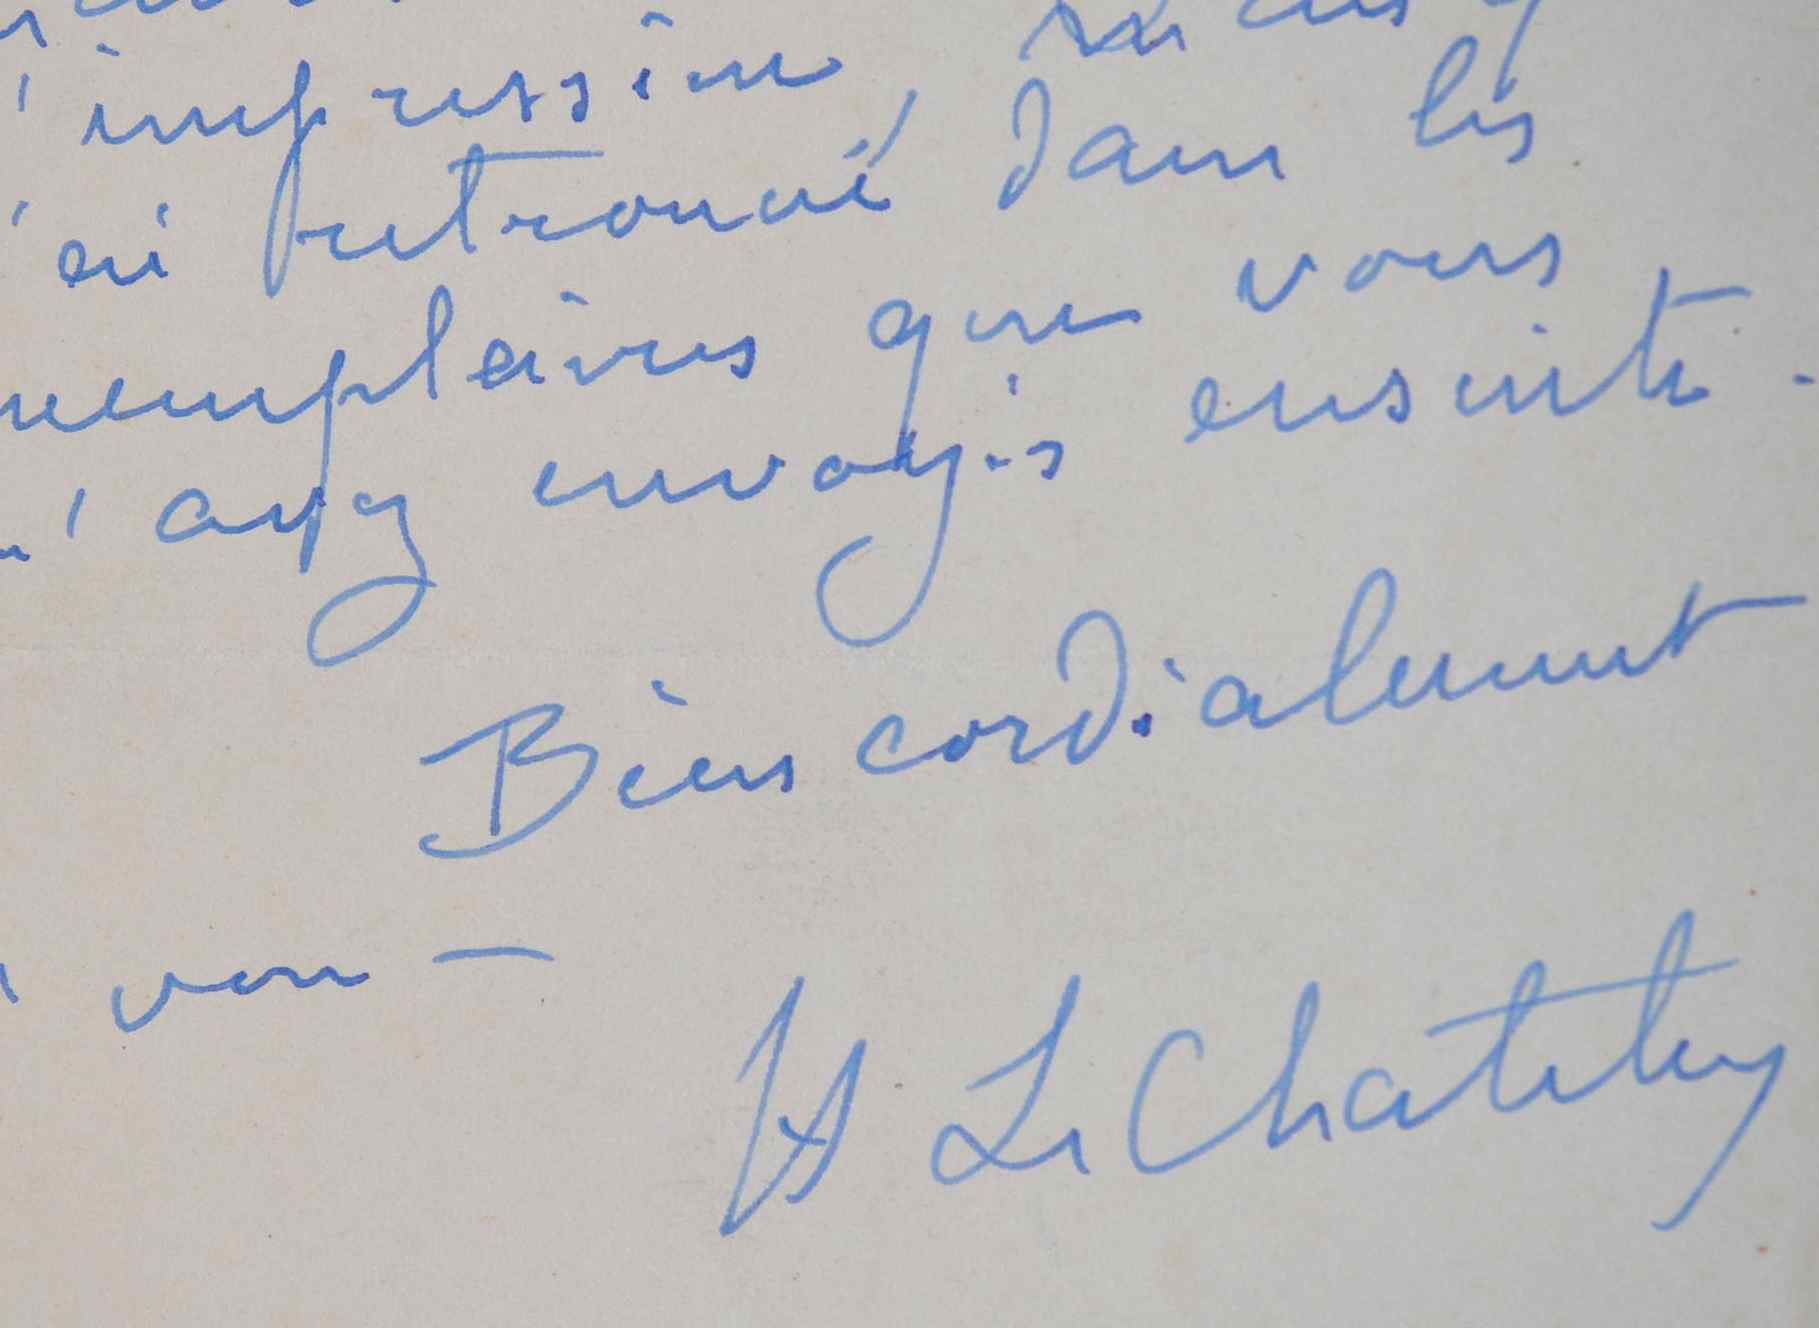 'impression,
'ai retrouvé dans les
exemplaires que vous
m'avez envoyés ensuite.
Bien cordialement
voir —
H Le Chatelier